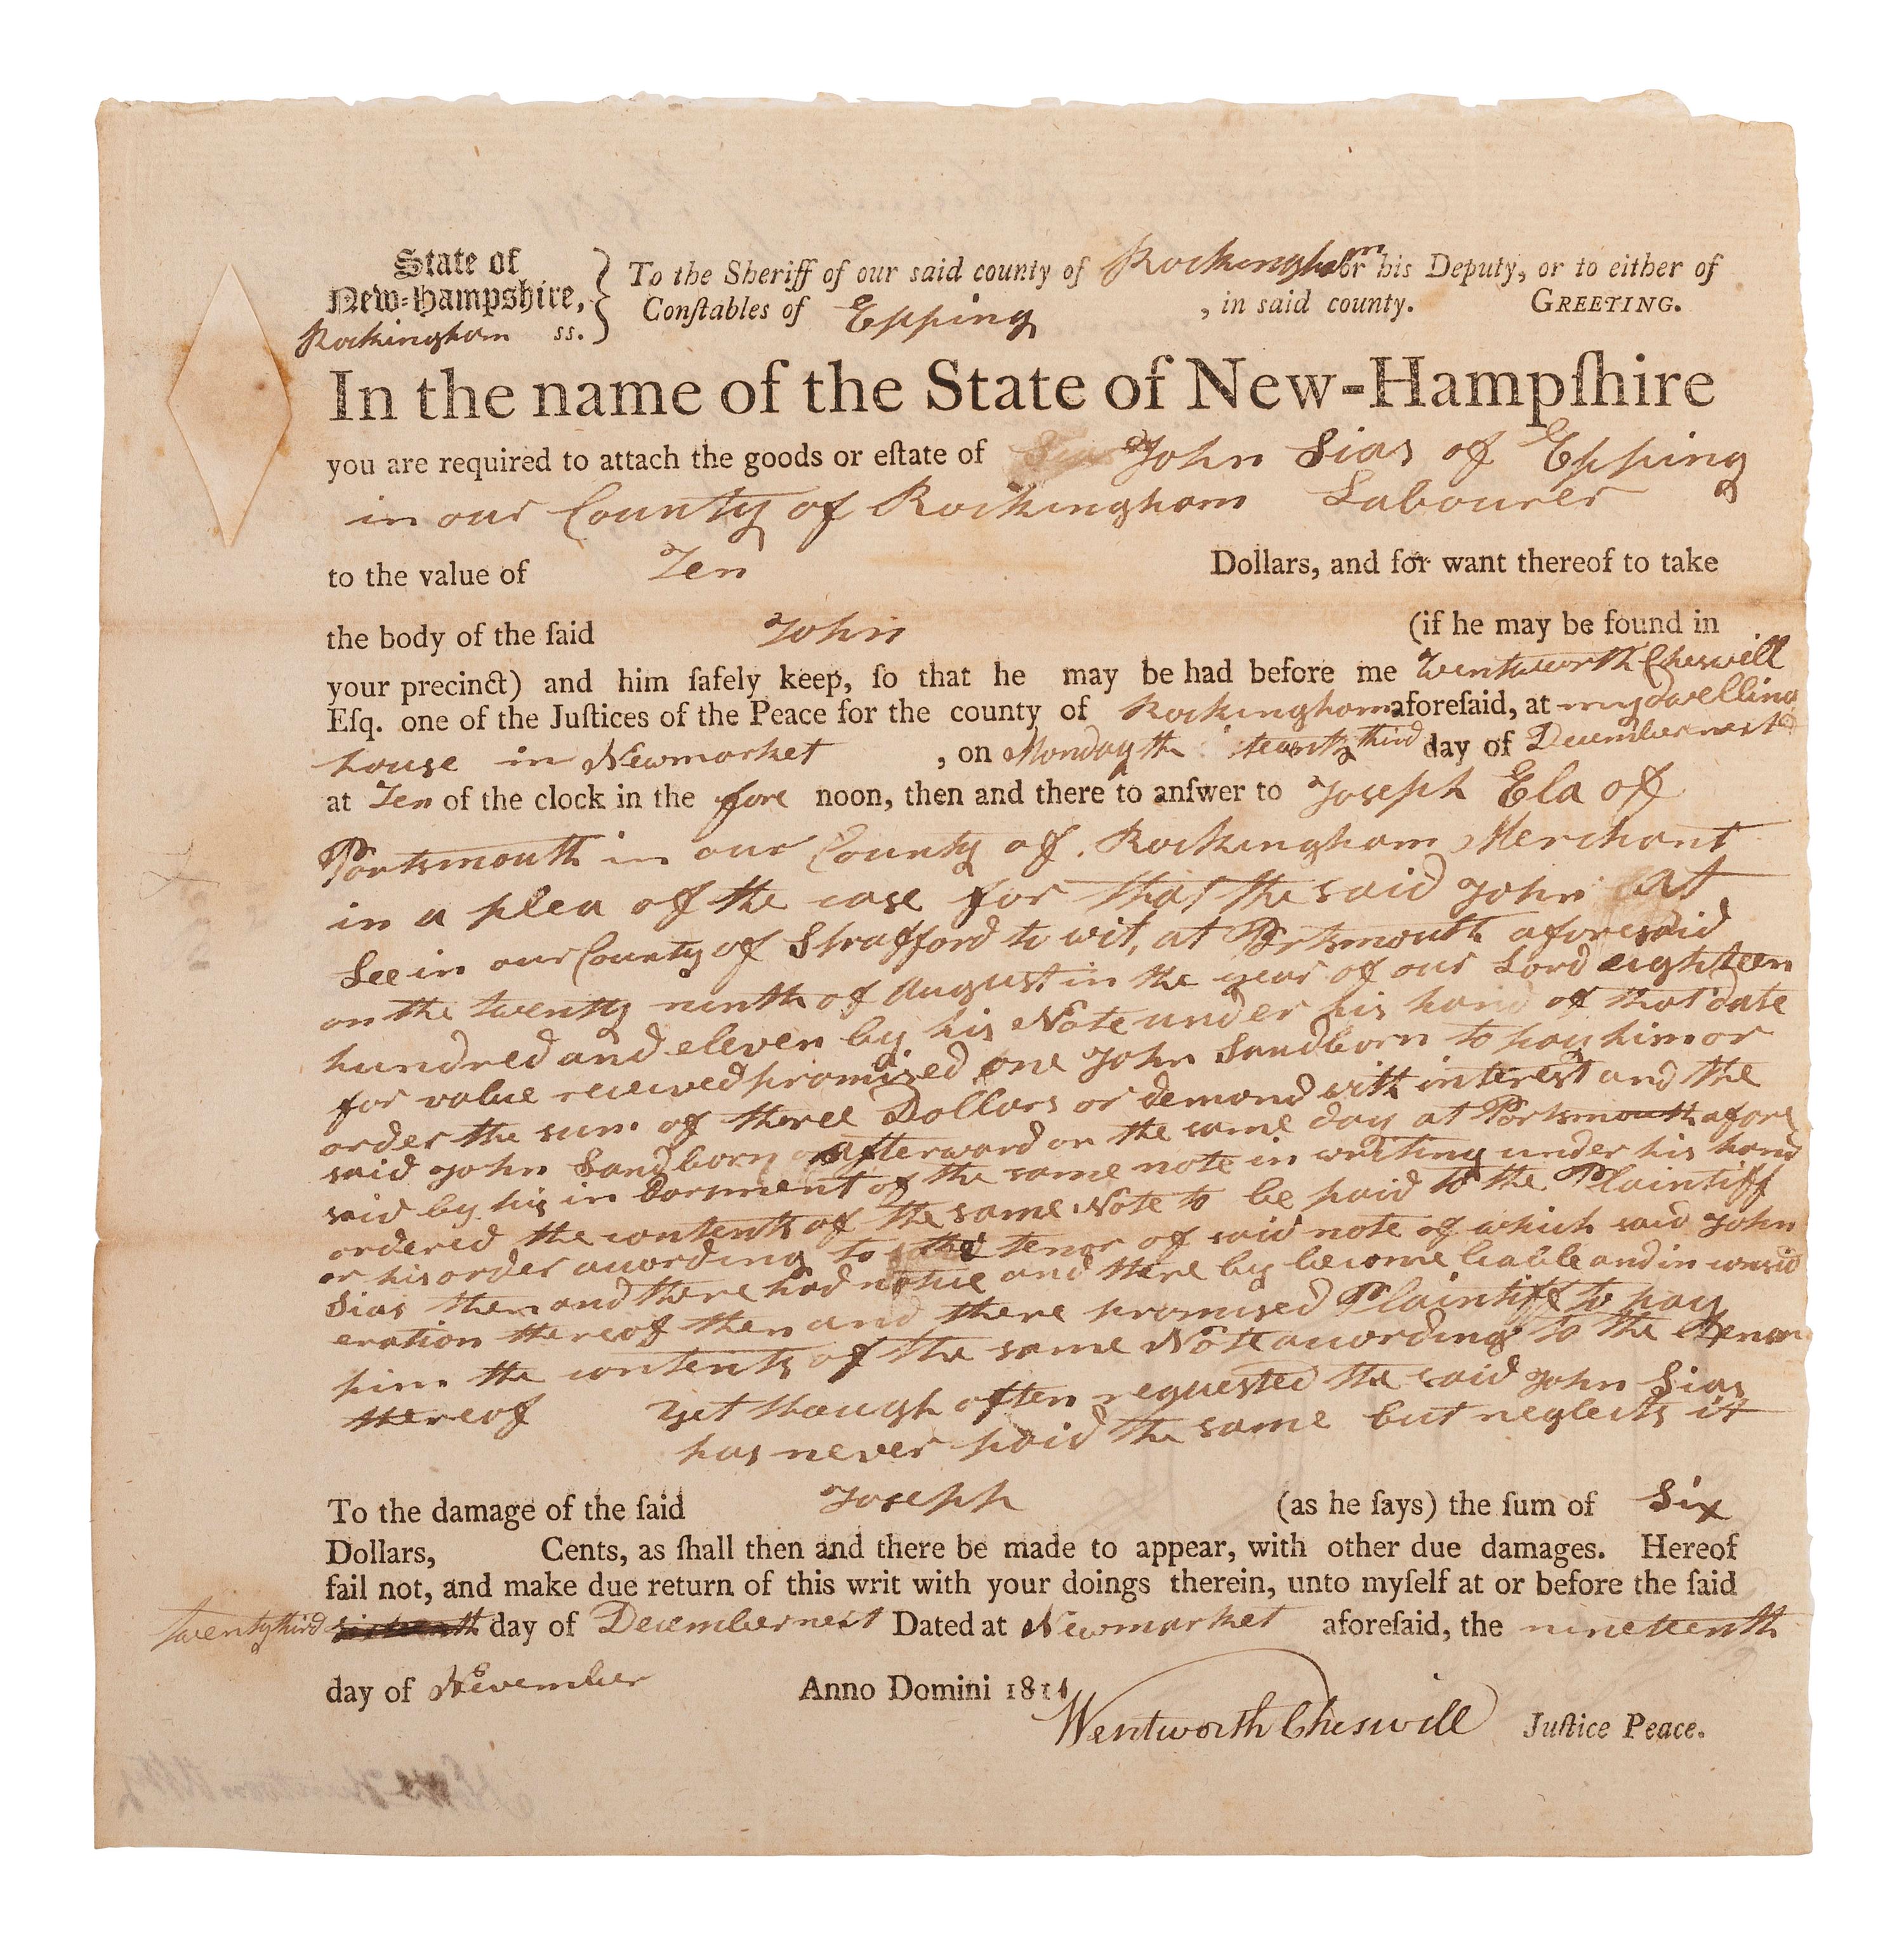 State of
New-Hampshire,
Rockingham ss.
To the Sheriff of our said county of Rockingham or his Deputy, or to either of
Conſtables of Epping , in said county. GREETING.
In the name of the State of New-Hampſhire
you are required to attach the goods or eſtate of John Sias of Epping
in our County of Rockingham Labourer
to the value of Ten Dollars, and for want thereof to take
the body of the ſaid John (if he may be found in
your precinct) and him ſafely keep, ſo that he may be had before me Wentworth Cheswill
Eſq. one of the Juſtices of the Peace for the county of Rockingham aforeſaid, at my dwelling
house in Newmarket , on Monday the twenty third day of December next
at Ten of the clock in the fore noon, then and there to anſwer to Joseph Ela of
Portsmouth in our County of Rockingham Merchant
in a plea of the case for that the said John at
Lee in our County of Strafford to wit, at Portsmouth aforesaid
on the twenty ninth of August in the year of our Lord eighteen
hundred and eleven by his Note under his hand of that date
for value received promised one John Sandborn to pay him or
order the sum of three Dollars or demand with interest and the
said John Sandborn afterward on the same day at Portsmouth afore
said by his indorsment of the same note in writing under his hand
ordered the contents of the same Note to be paid to the Plaintiff
or his order according to the tenor of said note of which said John
Sias then and there had notice and there by become liable and in consid
eration thereof then and there promised Plaintiff to pay
him the contents of the same Note according to the tenor
thereof yet though often requested the said John Sias
has never paid the same but neglects it
To the damage of the ſaid Joseph (as he ſays) the ſum of Six
Dollars, Cents, as ſhall then and there be made to appear, with other due damages. Hereof
fail not, and make due return of this writ with your doings therein, unto myſelf at or before the ſaid
twenty third sixteenth day of December next Dated at Newmarket aforeſaid, the nineteenth
day of November Anno Domini 1811
Wentworth Cheswill Juſtice Peace.